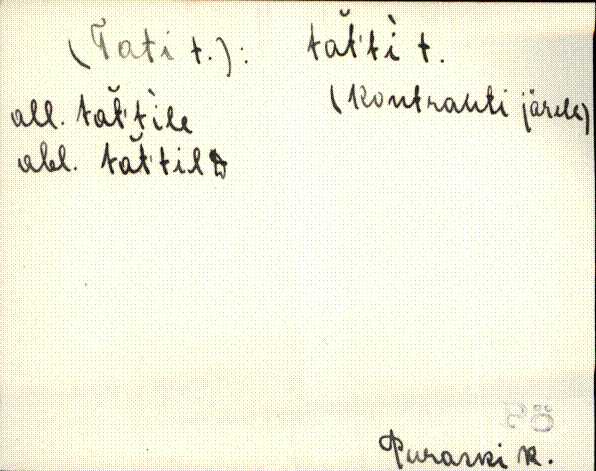 (Tati t.): tăt́tì t.
(Kontrahti järele)
all. tăt́tìle
abl. tăt́tilt
Puraski k.